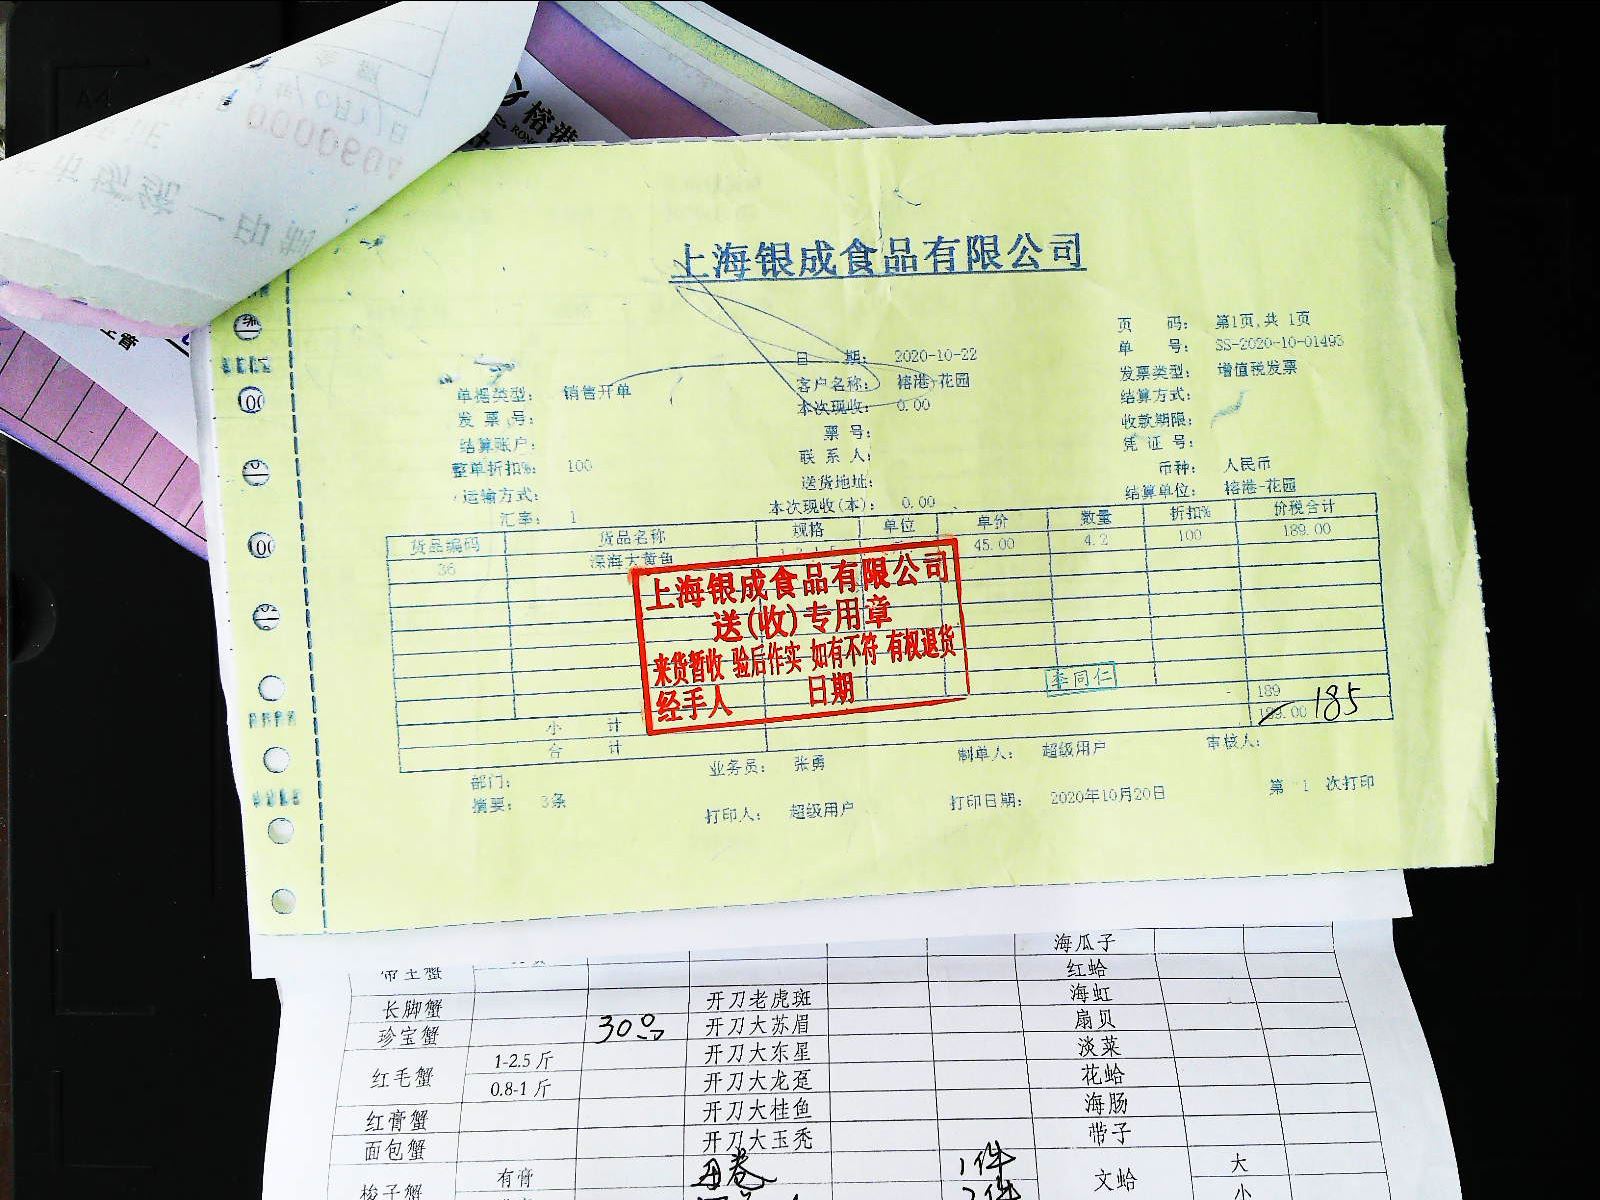 榕港
上海银成食品有限公司
页 码： 第1页,共 1页
日 期： 2020-10-22
单 号： SS-2020-10-01493
单据类型： 销售开单
客户名称： 榕港-花园
发票类型： 增值税发票
发 票 号：
本次现收： 0.00
结算方式：
结算账户：
票 号：
收款期限：
整单折扣%： 100
联 系 人：
凭 证 号：
运输方式：
送货地址：
币种： 人民币
汇率： 1
本次现收(本)： 0.00
结算单位： 榕港-花园
货品编码 货品名称 规格 单位 单价 数量 折扣% 价税合计
36 深海大黄鱼 45.00 4.2 100 189.00
上海银成食品有限公司
送(收)专用章
来货暂收 验后作实 如有不符 有权退货
经手人 日期
李同仁
小 计 189
合 计 189.00 185
部门： 业务员： 张勇 制单人： 超级用户 审核人：
摘要： 3条 打印人： 超级用户 打印日期： 2020年10月20日 第 1 次打印
帝王蟹 海瓜子
红蛤
长脚蟹 开刀老虎斑 海虹
珍宝蟹 开刀大苏眉 扇贝
红毛蟹 1-2.5 斤 开刀大东星 淡菜
0.8-1 斤 开刀大龙趸 花蛤
红膏蟹 开刀大桂鱼 海肠
面包蟹 开刀大玉秃 带子
梭子蟹 有膏 1件 文蛤 大
小